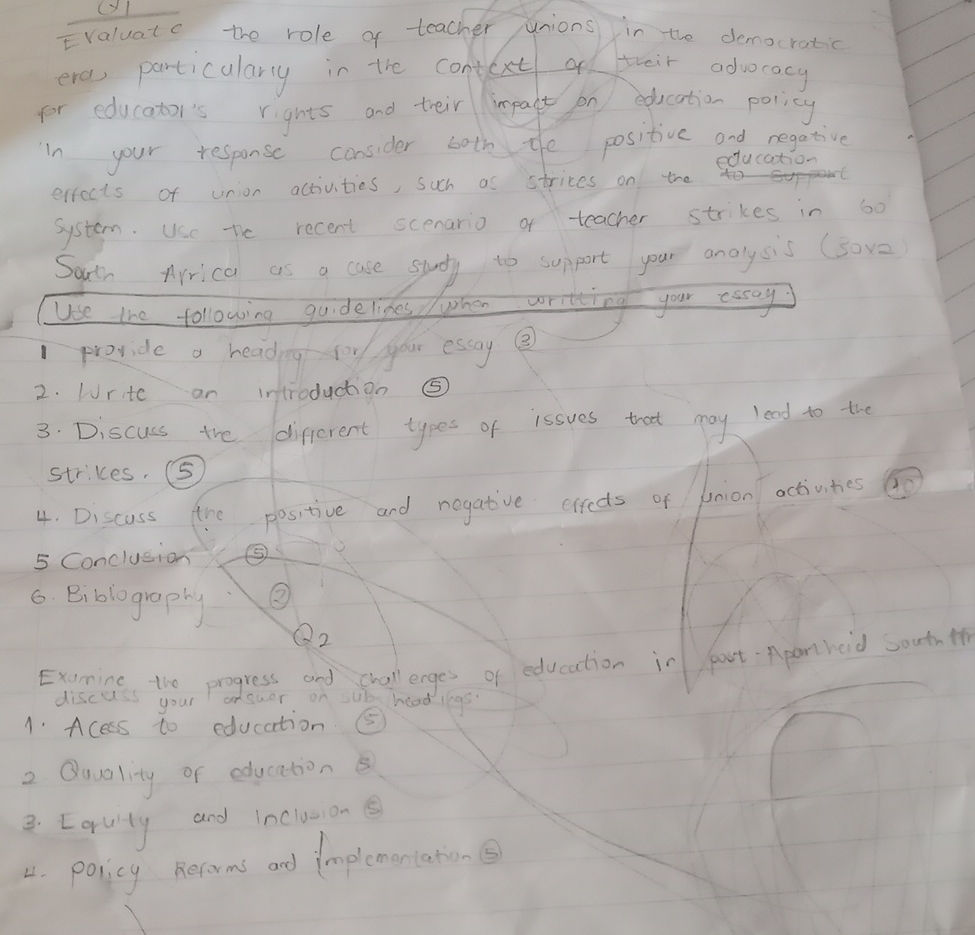 Q1
Evaluate the role of teacher unions in the democratic
era, particularly in the context of their advocacy
for educator's rights and their impact on education policy
In your response consider both the positive and negative
education
effects of union activities, such as strikes on the to support
system. Use the recent scenario of teacher strikes in 60
South Africa as a case study to support your analysis
Use the following guidelines when writting your essay.
1 provide a heading for your essay. 3
2. Write an introduction 5
3. Discuss the different types of issues that may lead to the
strikes. 5
4. Discuss the positive and negative effects of union activities
5 Conclusion 5
6. Biblography. 2
Q2
Examine the progress and challenges of education in post-Apartheid South Afr
discuss your answer on sub headings.
1. Acess to education 5
2 Quality of education 5
3. Equity and inclusion 5
4. Policy Reforms and Implementation 5